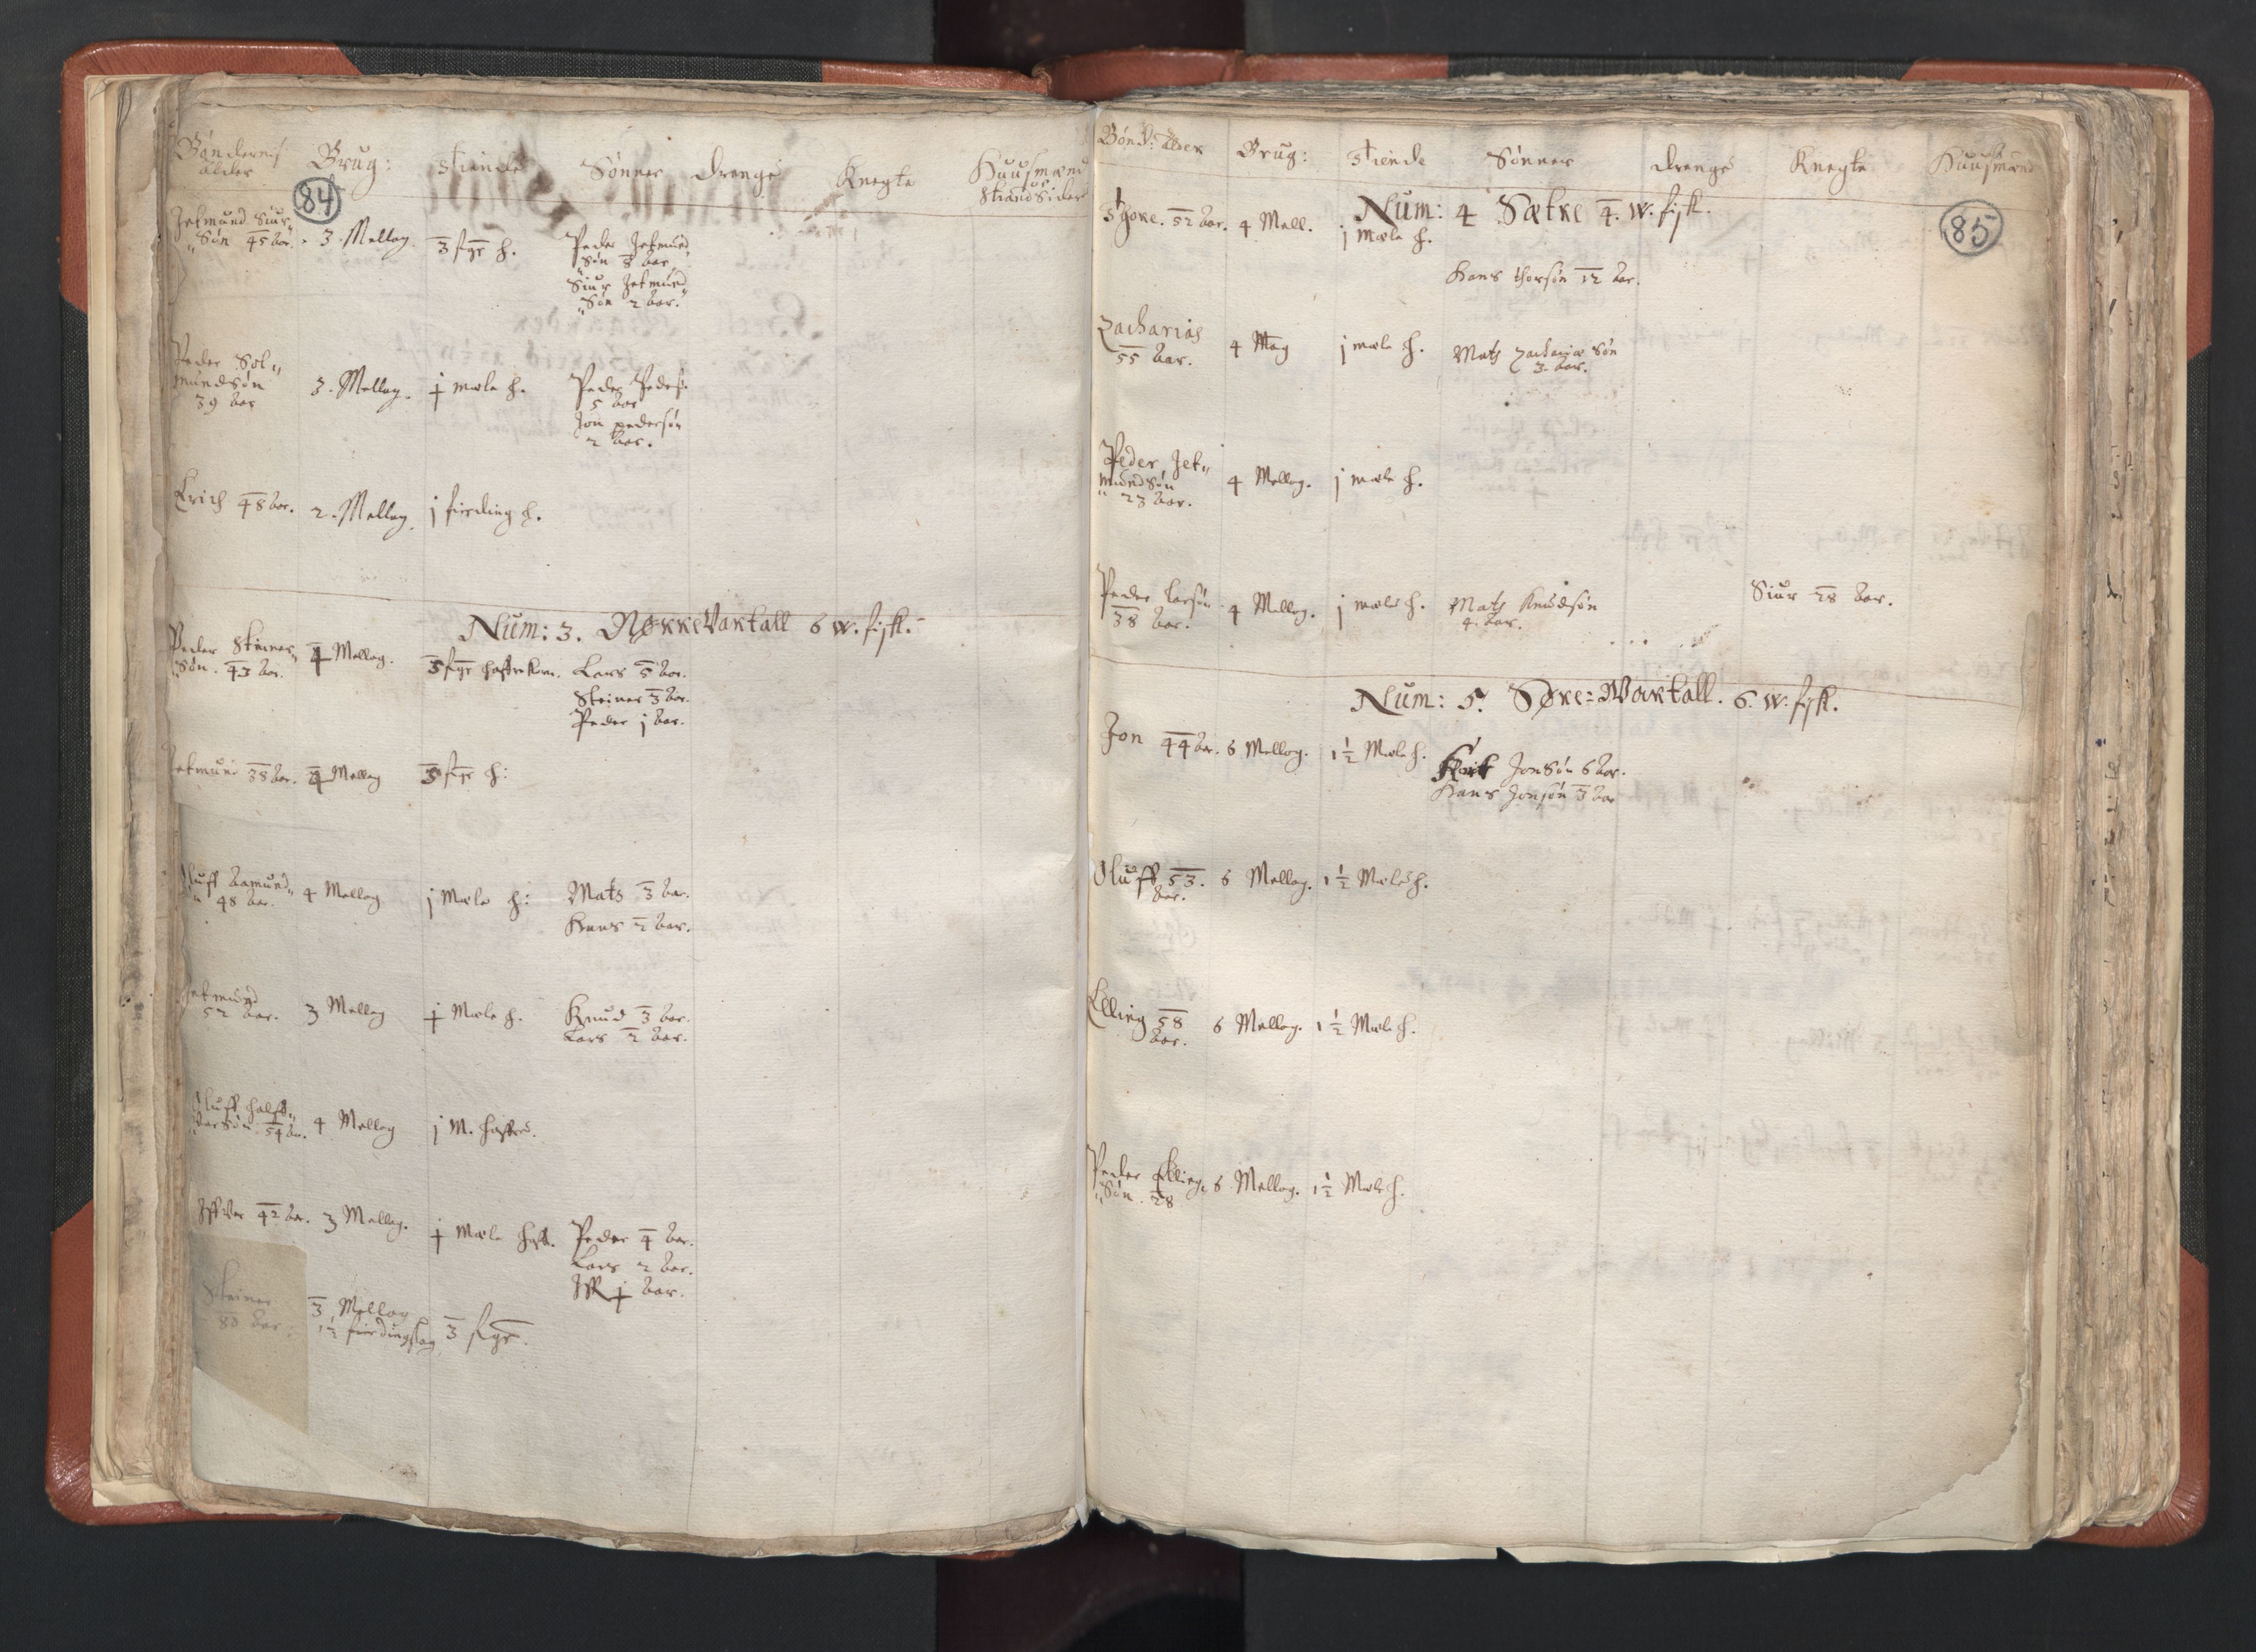 Bøndernis Alder
Brug:
Tiende
Sønner
Drenge
Knegte
Huusmænd
Strand Sider
84
Jetmund Siur„
„Søn 45 Aar. 3. Mellag. 3 fgr h. Peder Jetmund
„Søn 8 Aar.
Siur Jetmund
„Søn 2 Aar.
Peder Sol„
mundsøn
39 Aar 3. Mellag. j mæle h. Peder Peders:
5 Aar
Jon pedersøn
2 Aar.
Erich 48 Aar. 2. Mellag. j fierding h.
Num: 3. NørreVartall 6 W. fisk.
Peder Steiner„
„Søn. 43 Aar. 4 Mellag. 3 fgr haffrekorn. Lars 5 Aar.
Steiner 3 Aar.
Peder j Aar.
Jetmund 38 Aar. 4 Mellag 3 fgr h:
Oluff Aamund„
„ 48 Aar. 4 Mellag j Mæle h: Mats 3 Aar.
Hans 2 Aar.
Jetmund
52 Aar. 3 Mellag j Mæle h. Knud 3 Aar.
Lars 2 Aar.
Oluff Halff„
VarSøn. 54 Aar. 4 Mellag j M. haffre.
Iffver 42 Aar. 3 Mellag. j Mæle haff. Peder 4 Aar.
Lars 2 Aar.
Iff j Aar.
Steiner
80 Aar. 3 Mellag
1½ fierdinglag 3 fgr.
Bønd: Alder
Brug:
Tiende
Sønner
Drenge
Knegte
Huusmænd
85
Num: 4 Sætre 4. W. fisk.
Thore. 52 Aar. 4 Mell. j Mæle h.
Hans Thorsøn 12 Aar.
Zacharias
55 Aar. 4 Mag j mæle h. Mats Zachariæ Søn
3. Aar.
Peder Jet„
mundSøn
„ 23 Aar. 4 Mellag. j mæle h.
Peder Larsøn
38 Aar. 4 Mellag. j mæle h. Mats Knudsøn
4. Aar. Siur 28 Aar.
Num: 5. Søre=Wartall. 6. W. fisk.
Jon 44 Aar. 6 Mellag. 1½ Mæle h. JonSøn 6 Aar.
Hans Jonsøn 3 Aar
Oluff 53.
Aar. 6 Mellag. 1½ Mæle h.
Elling 58
Aar. 6 Mellag. 1½ Mæle h.
Peder Elling„
„Søn. 28 6 Mellag. 1½ Mæle h.